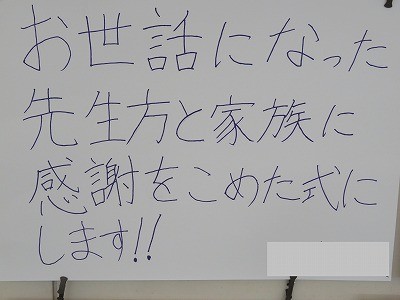 お世話になった
先生方と家族に
感謝をこめた式に
します!!